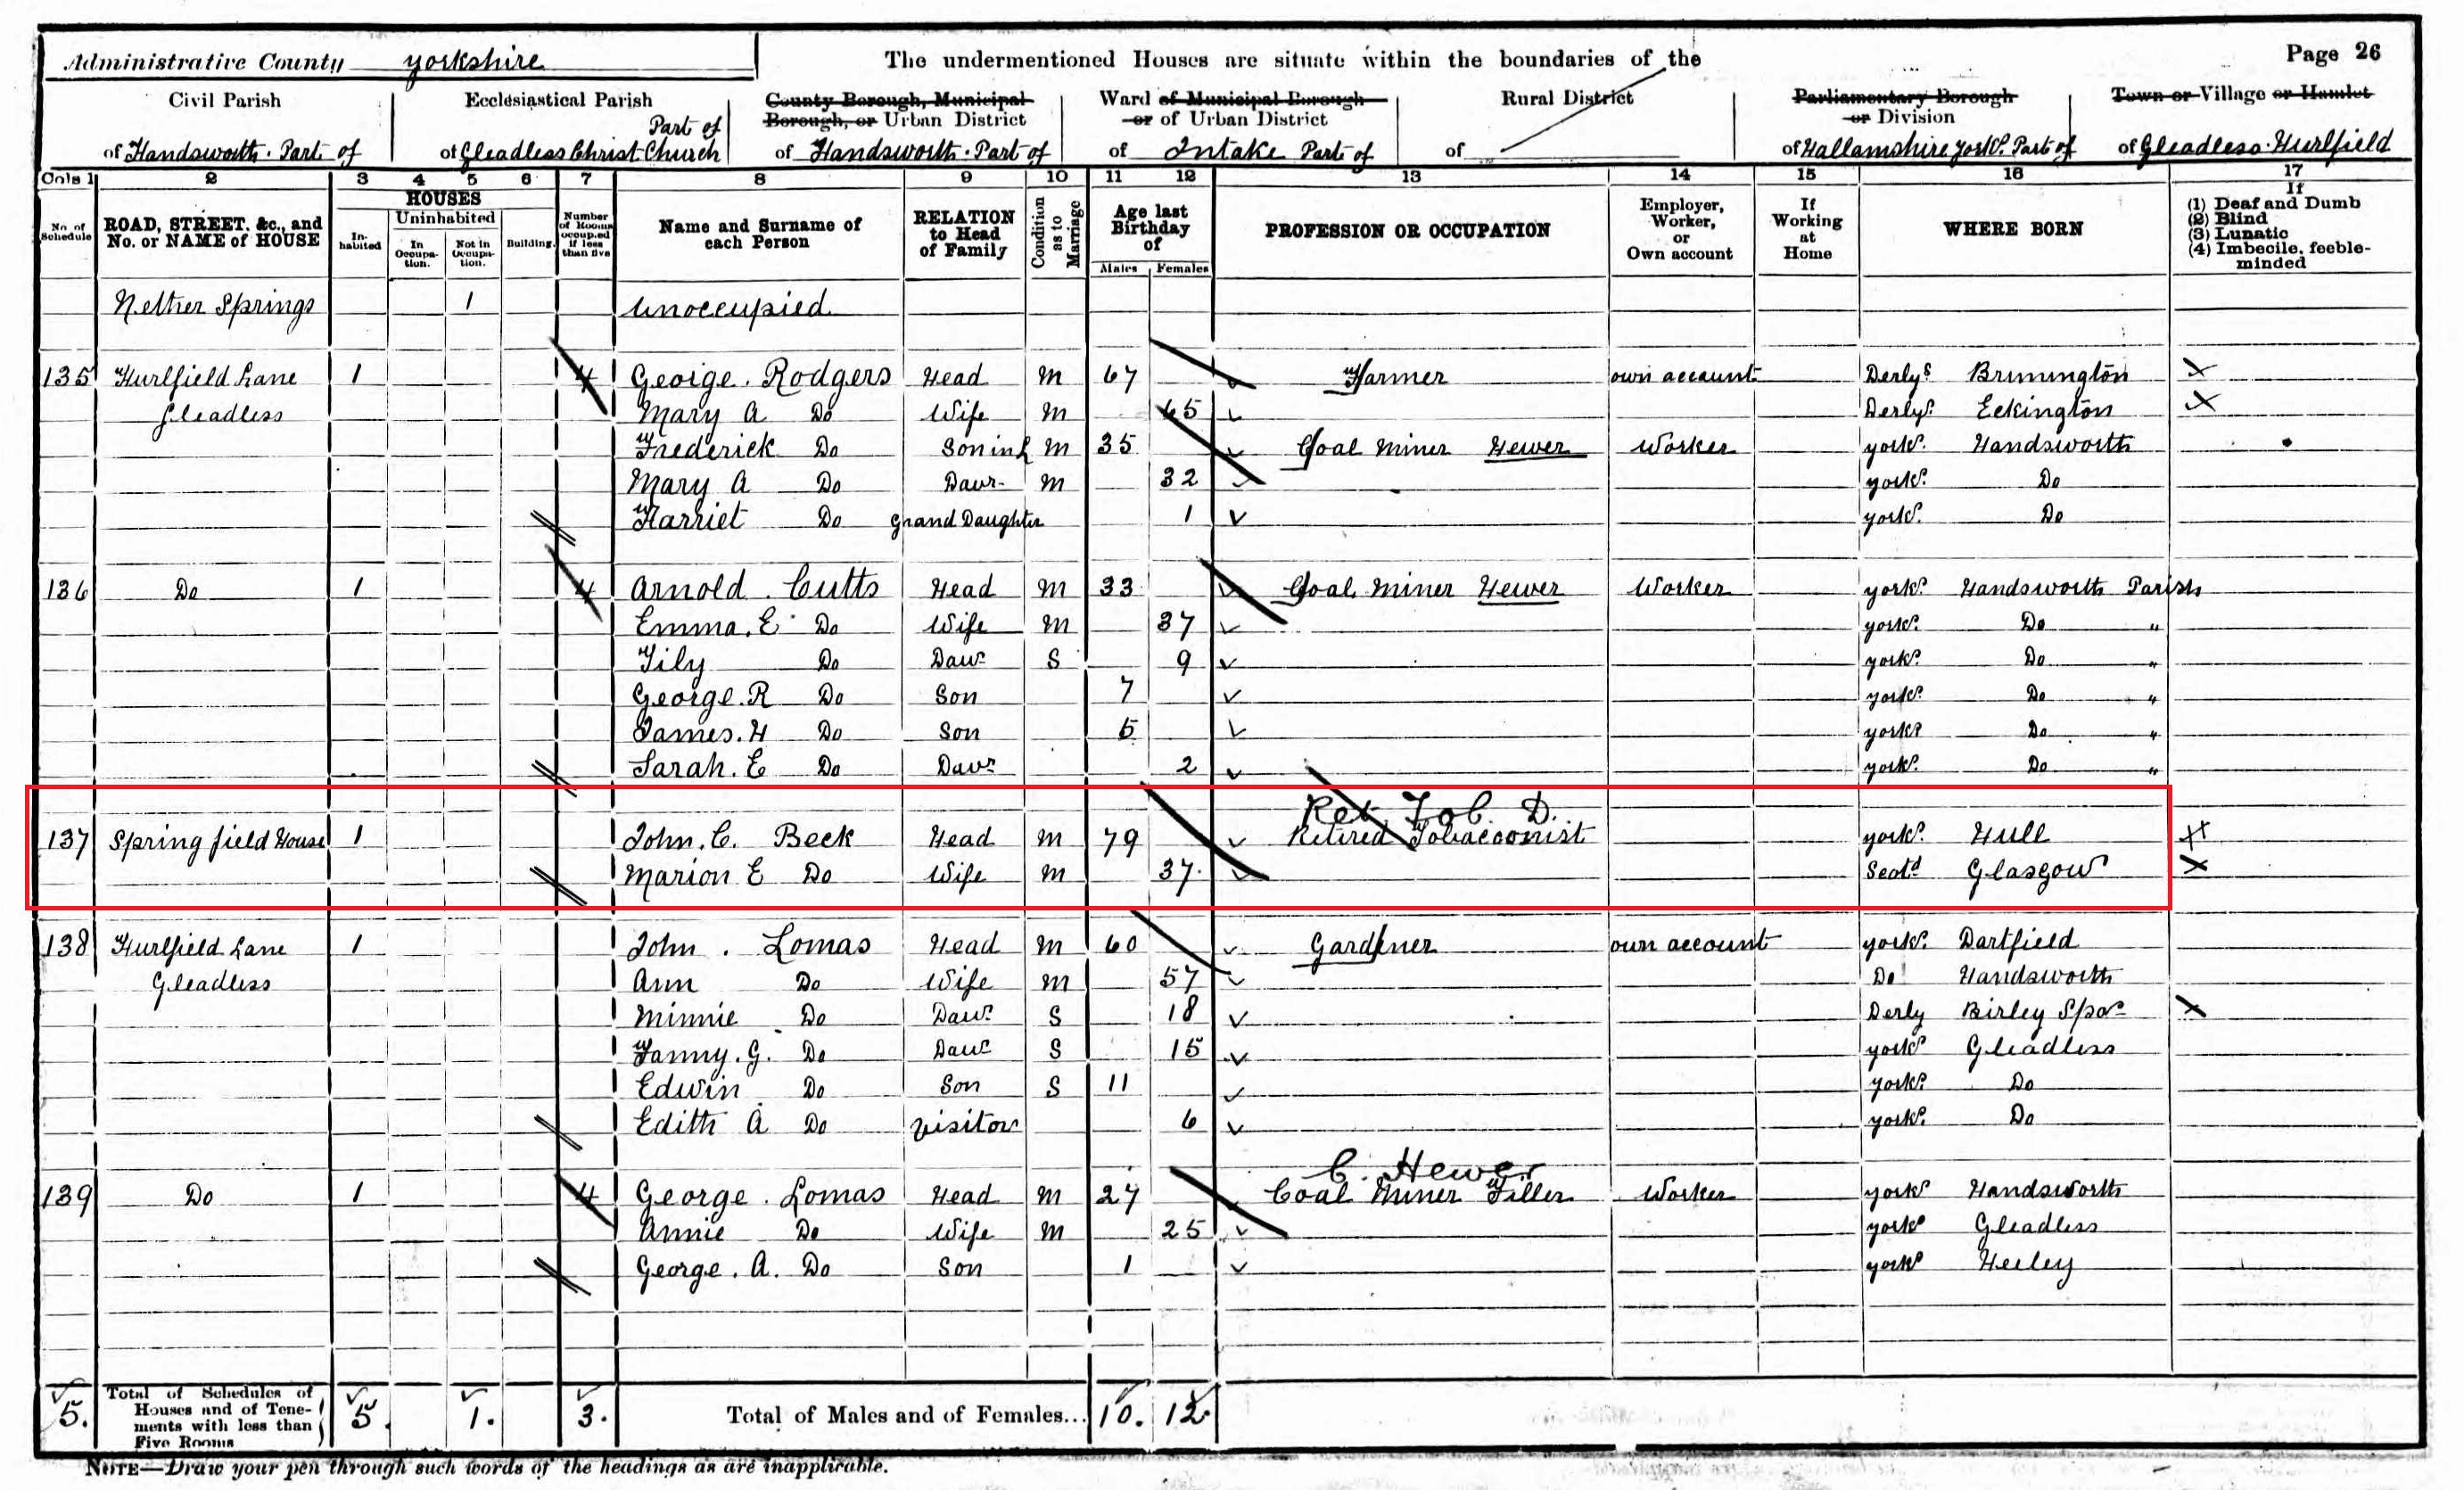 Administrative County Yorkshire The undermentioned Houses are situate within the boundaries of the Page 26
Civil Parish Ecclesiastical Parish County Borough, Municipal Borough, or Urban District Ward of Municipal Borough or of Urban District Rural District Parliamentary Borough or Division Town or Village or Hamlet
of Handsworth. Part of of Gleadless Christ Church Part of of Handsworth. Part of of Intake Part of of of Hallamshire Yorks. Part of of Gleadless Hurlfield
Cols 1 2 3 4 5 6 7 8 9 10 11 12 13 14 15 16 17
No. of Schedule ROAD, STREET, &c., and No. or NAME of HOUSE HOUSES Inhabited Uninhabited In Occupation. Not in Occupation. Building. Number of Rooms occupied if less than five Name and Surname of each Person RELATION to Head of Family Condition as to Marriage Age last Birthday of Males Females PROFESSION OR OCCUPATION Employer, Worker, or Own account If Working at Home WHERE BORN If (1) Deaf and Dumb (2) Blind (3) Lunatic (4) Imbecile, feeble-minded
Nether Springs 1 Unoccupied
135 Hurlfield Lane 1 4 George. Rodgers Head M 67 Farmer own account Derbys Brimington
Gleadless Mary A Do Wife M 65 Derbys. Eckington
Frederick Do Son in L M 35 Coal Miner Hewer Worker Yorks. Handsworth
Mary A Do Daur. M 32 Yorks. Do
Harriet Do Grand Daughter 1 Yorks. Do
136 Do 1 4 Arnold. Cutts Head M 33 Coal Miner Hewer Worker Yorks. Handsworth Parish
Emma. E Do Wife M 37 Yorks. Do "
Tily Do Daur S 9 Yorks. Do "
George. R Do Son 7 Yorks. Do "
James. H Do Son 5 Yorks. Do "
Sarah. E Do Daur 2 Yorks. Do "
Ret. Tob. D.
137 Springfield House 1 John. C. Beck Head M 79 Retired Tobacconist Yorks. Hull
Marion E Do Wife M 37 Scotd Glasgow
138 Hurlfield Lane 1 John. Lomas Head M 60 Gardener own account Yorks. Dartfield
Gleadless Ann Do Wife M 57 Do Handsworth
Minnie Do Daur. S 18 Derby Birley Spa
Fanny. G. Do Daur S 15 Yorks Gleadless
Edwin Do Son S 11 Yorks. Do
Edith A Do Visitor 6 Yorks. Do
C. Hewer
139 Do 1 4 George. Lomas Head M 27 Coal Miner Filler Worker Yorks Handsworth
Annie Do Wife M 25 Yorks Gleadless
George. A. Do Son 1 Yorks Heeley
5. Total of Schedules of Houses and of Tenements with less than Five Rooms 5. 1. 3. Total of Males and of Females... 10. 12
NOTE—Draw your pen through such words of the headings as are inapplicable.